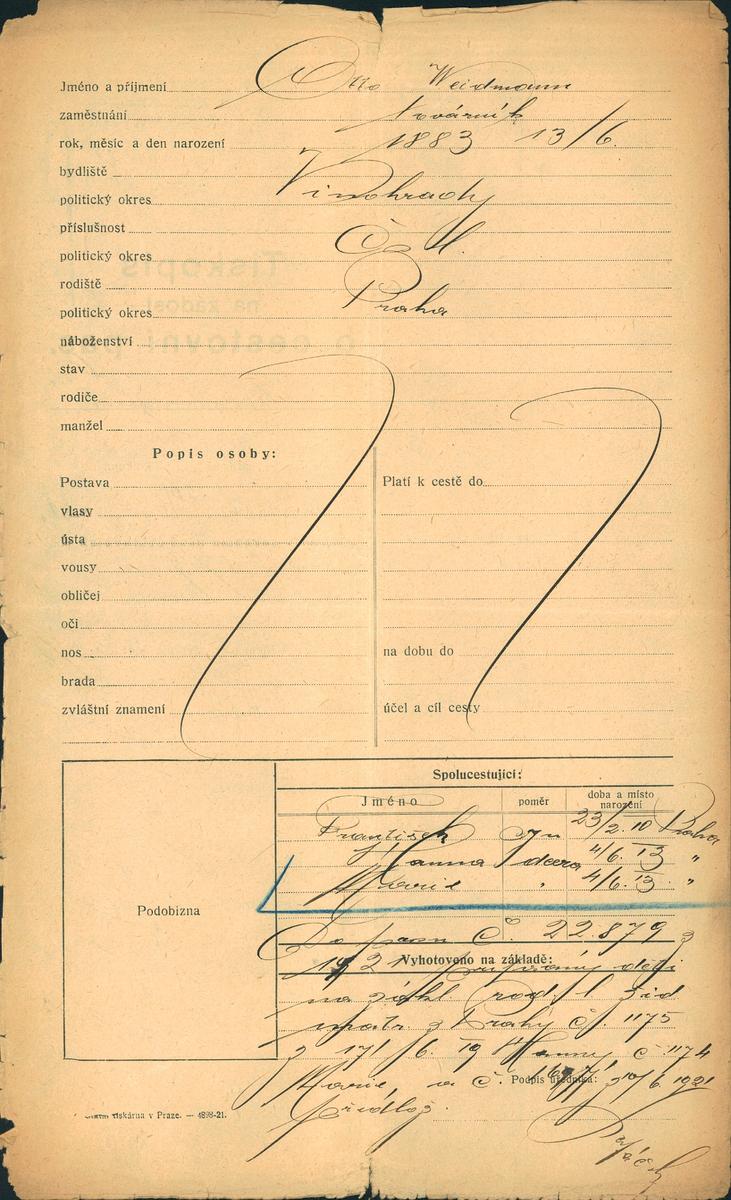 Jméno a příjmení Otto Weidmann
zaměstnání továrník
rok, měsíc a den narození 1883 13/6.
bydliště
politický okres Vinohrady
příslušnost
politický okres
rodiště
politický okres Praha
náboženství
stav
rodiče
manžel
Popis osoby:
Postava
vlasy
ústa
vousy
obličej
oči
nos
brada
zvláštní znamení
Platí k cestě do
na dobu do
účel a cíl cesty
Podobizna
Spolucestující:
Jméno poměr doba a místo narození
František syn 23/2.10 Praha
Hanna dcera 4/6.13 "
Marie " 4/6.13 "
Do pasu č. 22.879 z
1921 připsány děti
Vyhotoveno na základě:
na zákl. rod. l. žid
matr. z Prahy čj. 1175
z 17/6. 19 Hanny č 1174
Marie, a č. 30/6.1921
Podpis úředníka:
předlož.
tiskárna v Praze. — 4898-21.